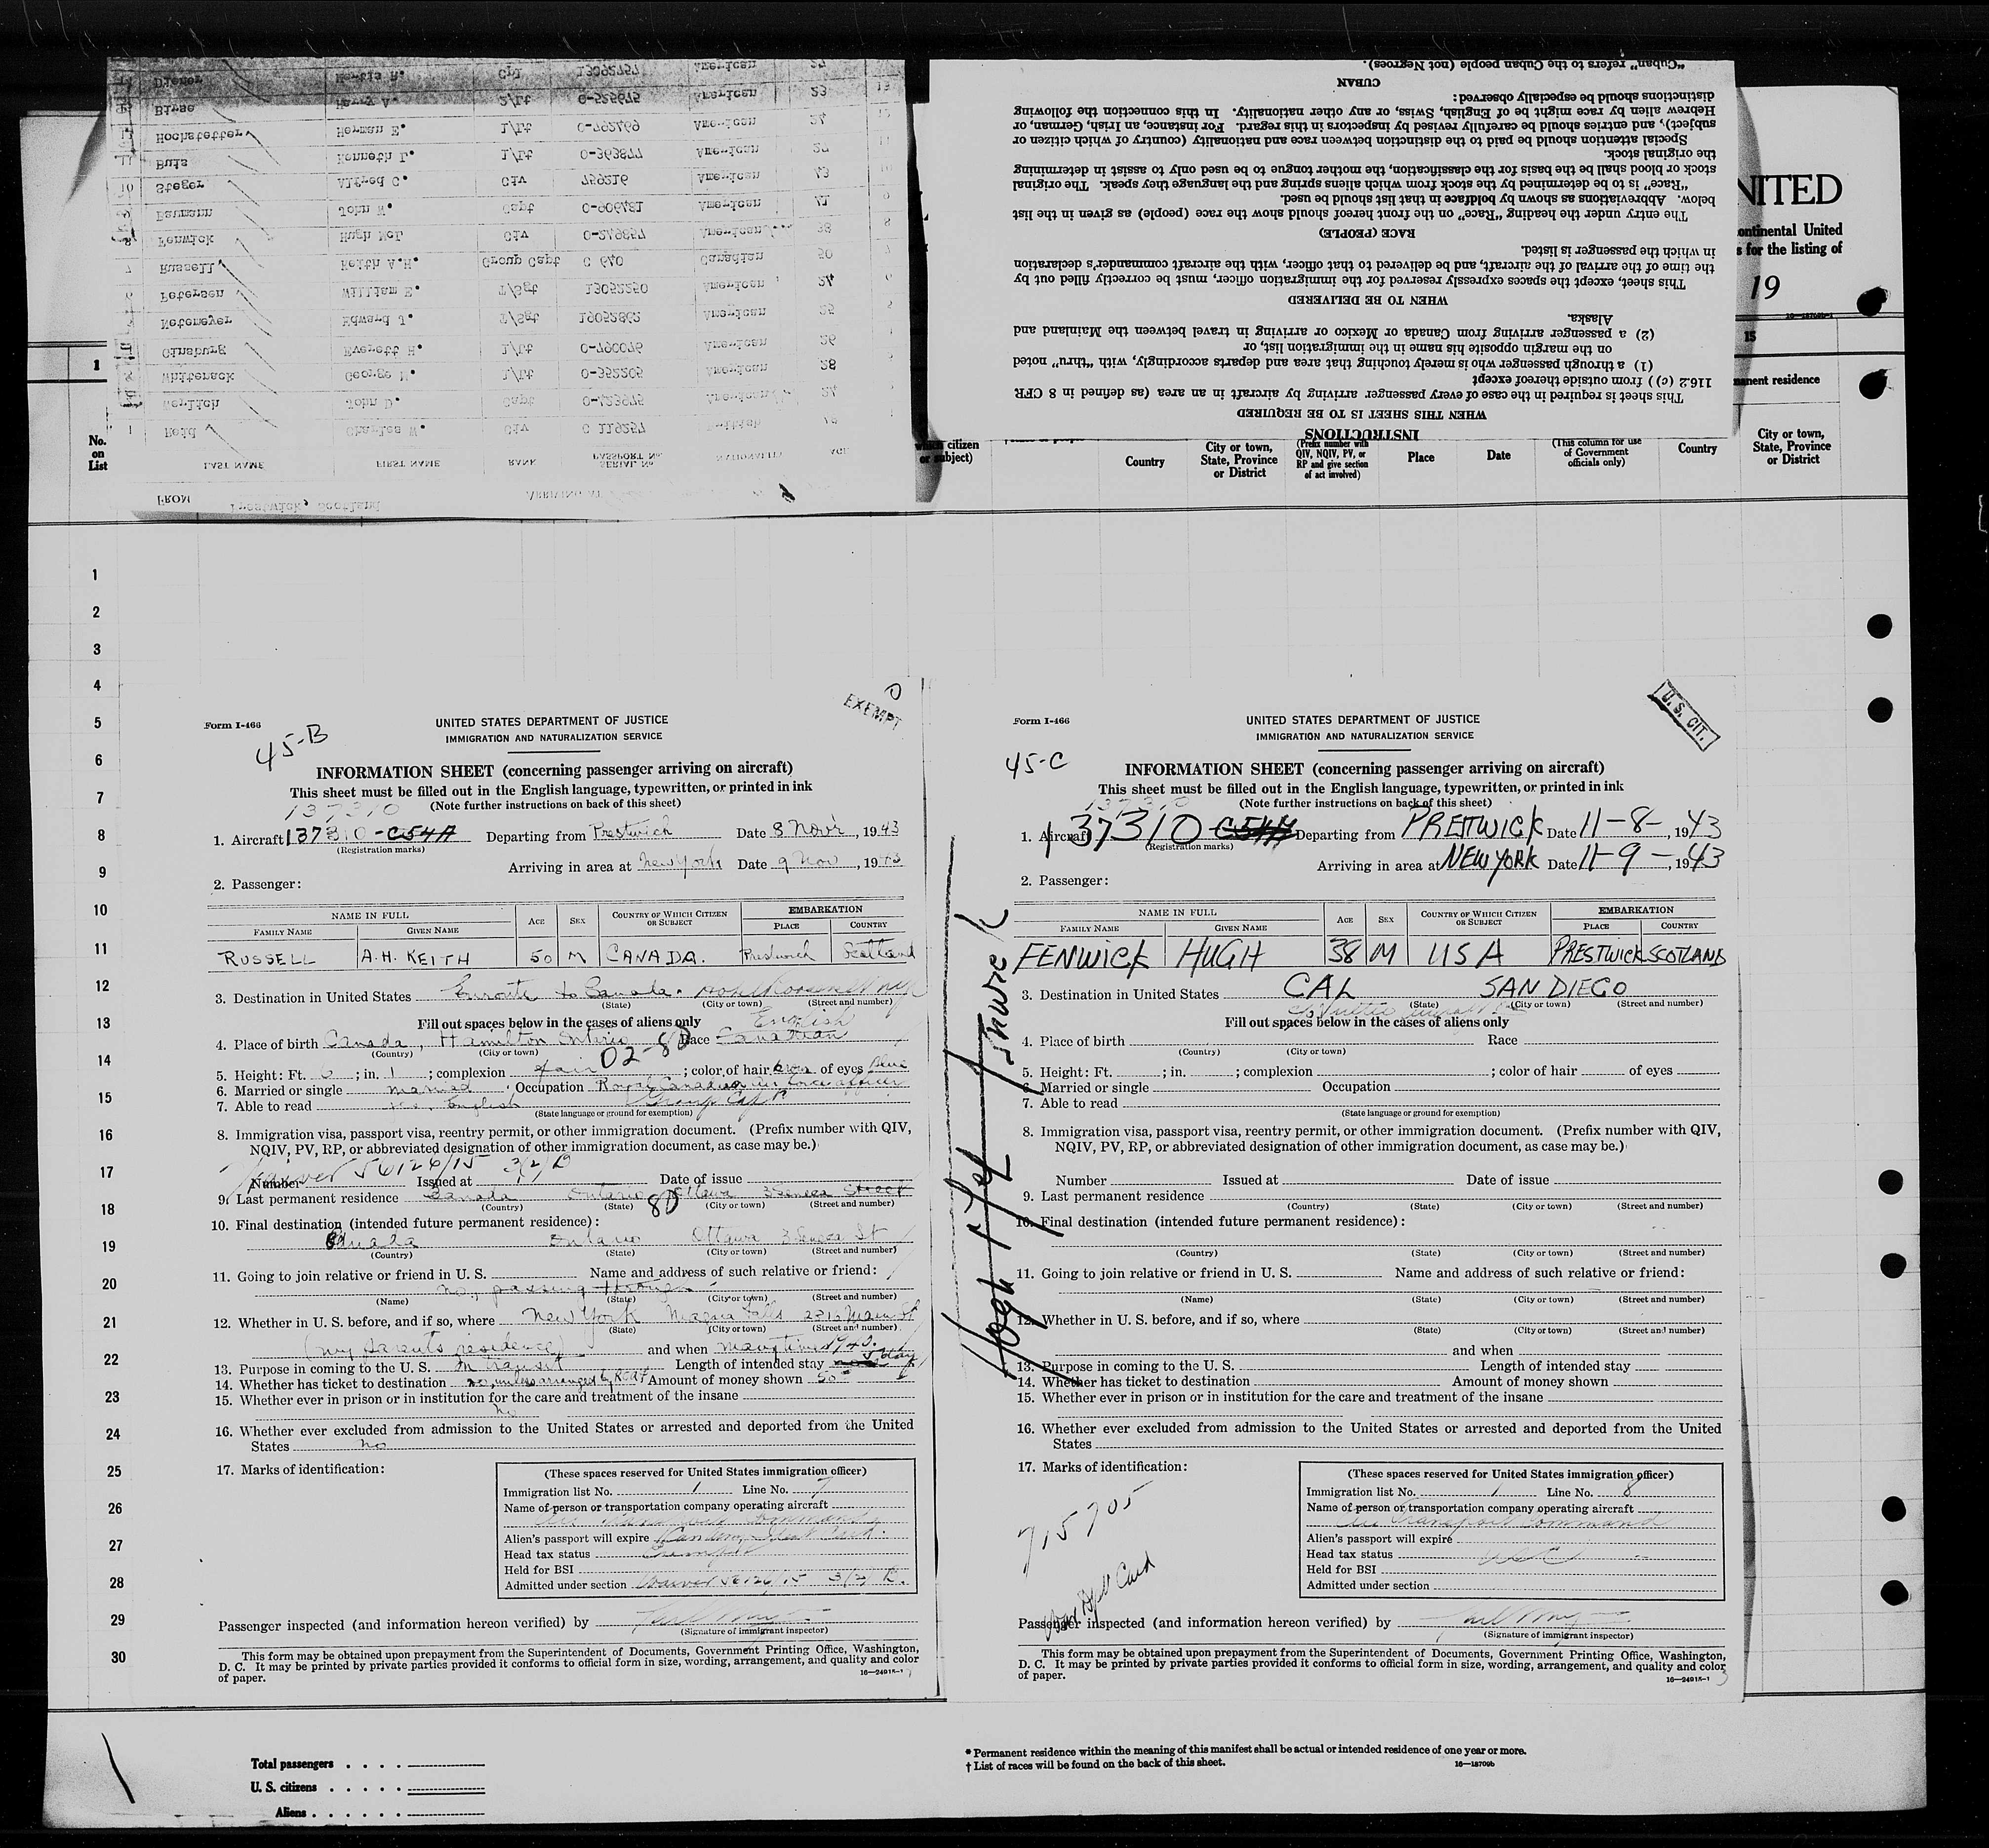 Dienor Mertis R. Cpl 13092757 American 27
Birse Harry A. 2/Lt O-525675 American 23
Hochstetter Herman E. 1/Lt O-792469 American 24
Buts Kenneth L. 1/Lt O-363877 American
Steger Alfred C. Civ 759216 American 43
Baumann John W. Capt O-906481 American 41
Fenwick Hugh McL Civ O-219857 American 38
Russell Keith A.H. Group Capt C 640 Canadian 50
Petersen William E. T/Sgt 13052250 American 24
Netemeyer Edward J. T/Sgt 19052862 American
Ginsburg Everett H. 1/Lt O-790076 American 26
Whiterack George N. 1/Lt O-352205 American 28
John D. Capt American
Reid Charles W. Civ C 119257
LAST NAME FIRST NAME RANK PASSPORT No. SERIAL No. NATIONALITY AGE
FROM Prestwick, Scotland ARRIVING AT
"Cuban" refers to the Cuban people (not Negroes).
CUBAN
distinctions should be especially observed:
Hebrew alien by race might be of English, Swiss, or any other nationality. In this connection the following
subject), and entries should be carefully revised by inspectors in this regard. For instance, an Irish, German, or
Special attention should be paid to the distinction between race and nationality (country of which citizen or
the original stock.
stock or blood shall be the basis for the classification, the mother tongue to be used only to assist in determining
"Race" is to be determined by the stock from which aliens spring and the language they speak. The original
below. Abbreviations as shown by boldface in that list should be used.
The entry under the heading "Race" on the front hereof should show the race (people) as given in the list
RACE (PEOPLE)
in which the passenger is listed.
the time of the arrival of the aircraft, and be delivered to that officer, with the aircraft commander's declaration
This sheet, except the spaces expressly reserved for the immigration officer, must be correctly filled out by
WHEN TO BE DELIVERED
Alaska.
(2) a passenger arriving from Canada or Mexico or arriving in travel between the Mainland and
on the margin opposite his name in the immigration list, or
(1) a through passenger who is merely touching that area and departs accordingly, with "thru" noted
116.2 (c)) from outside thereof except
This sheet is required in the case of every passenger arriving by aircraft in an area (as defined in 8 CFR
WHEN THIS SHEET IS TO BE REQUIRED
INSTRUCTIONS
NITED
ontinental United
s for the listing of
19
1
15
manent residence
No.
on
List
which citizen
or subject)
Country
City or town,
State, Province
or District
(Prefix number with
QIV, NQIV, PV, or
RP and give section
of act involved)
Place
Date
(This column for use
of Government
officials only)
Country
City or town,
State, Province
or District
1
2
3
4
5
6
7
8
9
10
11
12
13
14
15
16
17
18
19
20
21
22
23
24
25
26
27
28
29
30
EXEMPT
Form I-466
45-B
UNITED STATES DEPARTMENT OF JUSTICE
IMMIGRATION AND NATURALIZATION SERVICE
INFORMATION SHEET (concerning passenger arriving on aircraft)
This sheet must be filled out in the English language, typewritten, or printed in ink
(Note further instructions on back of this sheet)
137310
1. Aircraft 137310-C54A Departing from Prestwick Date 8 Nov'r, 1943
(Registration marks)
Arriving in area at New York Date 9 Nov, 1943
2. Passenger:
NAME IN FULL AGE SEX COUNTRY OF WHICH CITIZEN OR SUBJECT EMBARKATION
FAMILY NAME GIVEN NAME PLACE COUNTRY
RUSSELL A.H. KEITH 50 M CANADA. Prestwick Scotland
3. Destination in United States Enroute to Canada.
(State) (City or town) (Street and number)
Fill out spaces below in the cases of aliens only
English
4. Place of birth Canada, Hamilton Ontario Race Canadian
(Country) (City or town)
02-8D
5. Height: Ft. 6; in. 1; complexion fair; color of hair brown of eyes Blue
6. Married or single married Occupation Royal Canadian Air Force officer
Group Capt
7. Able to read yes, English
(State language or ground for exemption)
8. Immigration visa, passport visa, reentry permit, or other immigration document. (Prefix number with QIV,
NQIV, PV, RP, or abbreviated designation of other immigration document, as case may be.)
Waiver 56126/15 3/2/B
Number Issued at Date of issue
9. Last permanent residence Canada Ontario Ottawa 3 Seneca Street
(Country) (State) (City or town) (Street and number)
8D
10. Final destination (intended future permanent residence):
Canada Ontario Ottawa 3 Seneca St
(Country) (State) (City or town) (Street and number)
11. Going to join relative or friend in U. S. Name and address of such relative or friend:
no, passing through
(Name) (State) (City or town) (Street and number)
12. Whether in U. S. before, and if so, where New York Niagara Falls Main St
(State) (City or town) (Street and number)
(my parents residence) and when many times 1942.
13. Purpose in coming to the U. S. In transit Length of intended stay 1 day
14. Whether has ticket to destination no, unless arranged by RCAF Amount of money shown 50
15. Whether ever in prison or in institution for the care and treatment of the insane
no
16. Whether ever excluded from admission to the United States or arrested and deported from the United
States no
17. Marks of identification:
(These spaces reserved for United States immigration officer)
Immigration list No. 1 Line No. 7
Name of person or transportation company operating aircraft
Air Transport Command
Alien's passport will expire
Head tax status Exempt
Held for BSI
Admitted under section Waiver 56126/15 3/2/B.
Passenger inspected (and information hereon verified) by
(Signature of immigrant inspector)
This form may be obtained upon prepayment from the Superintendent of Documents, Government Printing Office, Washington,
D. C. It may be printed by private parties provided it conforms to official form in size, wording, arrangement, and quality and color
of paper.
16—24915-1
U. S. CIT.
Form I-466
45-C
UNITED STATES DEPARTMENT OF JUSTICE
IMMIGRATION AND NATURALIZATION SERVICE
INFORMATION SHEET (concerning passenger arriving on aircraft)
This sheet must be filled out in the English language, typewritten, or printed in ink
(Note further instructions on back of this sheet)
137310
1. Aircraft 137310 C54A Departing from PRESTWICK Date 11-8-, 1943
(Registration marks)
Arriving in area at NEW YORK Date 11-9-, 1943
2. Passenger:
NAME IN FULL AGE SEX COUNTRY OF WHICH CITIZEN OR SUBJECT EMBARKATION
FAMILY NAME GIVEN NAME PLACE COUNTRY
FENWICK HUGH 38 M USA PRESTWICK SCOTLAND
3. Destination in United States CAL SAN DIEGO
(State) (City or town) (Street and number)
Fill out spaces below in the cases of aliens only
4. Place of birth Race
(Country) (City or town)
5. Height: Ft. ; in. ; complexion ; color of hair of eyes
6. Married or single Occupation
7. Able to read
(State language or ground for exemption)
8. Immigration visa, passport visa, reentry permit, or other immigration document. (Prefix number with QIV,
NQIV, PV, RP, or abbreviated designation of other immigration document, as case may be.)
Number Issued at Date of issue
9. Last permanent residence
(Country) (State) (City or town) (Street and number)
10. Final destination (intended future permanent residence):
(Country) (State) (City or town) (Street and number)
11. Going to join relative or friend in U. S. Name and address of such relative or friend:
(Name) (State) (City or town) (Street and number)
12. Whether in U. S. before, and if so, where
(State) (City or town) (Street and number)
and when
13. Purpose in coming to the U. S. Length of intended stay
14. Whether has ticket to destination Amount of money shown
15. Whether ever in prison or in institution for the care and treatment of the insane
16. Whether ever excluded from admission to the United States or arrested and deported from the United
States
17. Marks of identification:
715705
(These spaces reserved for United States immigration officer)
Immigration list No. 1 Line No. 8
Name of person or transportation company operating aircraft
Air Transport Command
Alien's passport will expire
Head tax status USC
Held for BSI
Admitted under section
Passenger inspected (and information hereon verified) by
(Signature of immigrant inspector)
This form may be obtained upon prepayment from the Superintendent of Documents, Government Printing Office, Washington,
D. C. It may be printed by private parties provided it conforms to official form in size, wording, arrangement, and quality and color
of paper.
16—24915-1
Total passengers
U. S. citizens
Aliens
* Permanent residence within the meaning of this manifest shall be actual or intended residence of one year or more.
† List of races will be found on the back of this sheet.
16—18709b